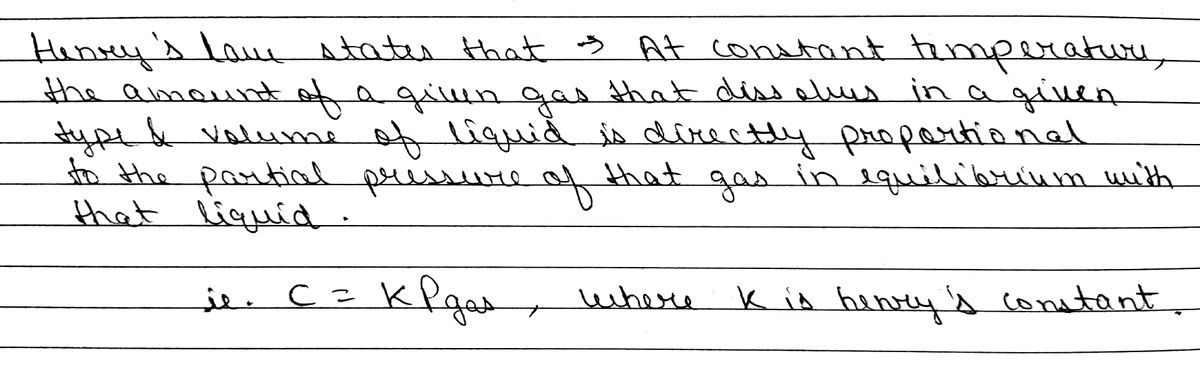 Henry's law states that → At constant temperature,
the amount of a given gas that dissolves in a given
type & volume of liquid is directly proportional
to the partial pressure of that gas in equilibrium with
that liquid.
ie. C = KPgas, where K is henry's constant.